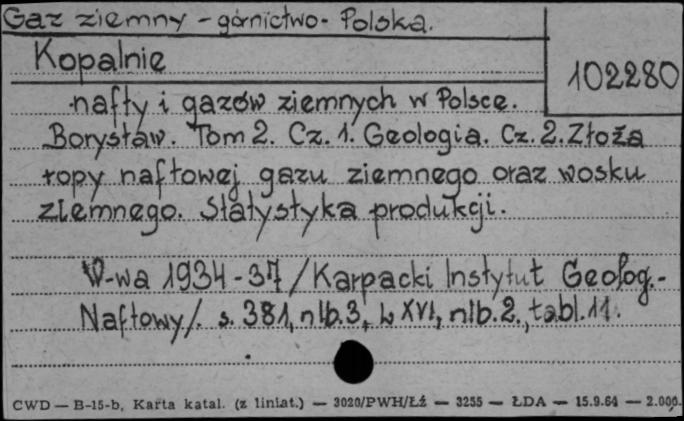 Gaz ziemny - górnictwo - Polska.
Kopalnie
102280
nafty i gazów ziemnych w Polsce.
Borysław. Tom 2. Cz. 1. Geologia. Cz. 2. Złoża
ropy naftowej gazu ziemnego oraz wosku
ziemnego. Statystyka produkcji.
W-wa 1934-37 /Karpacki Instytut Geolog.-
Naftowy/. s. 381, nlb. 3, L XVI, nlb. 2., tabl. 11.
CWD — B-15-b, Karta katal. (z liniat.) — 3020/PWH/Łź — 3255 — ŁDA — 15.9.64 — 2.000.